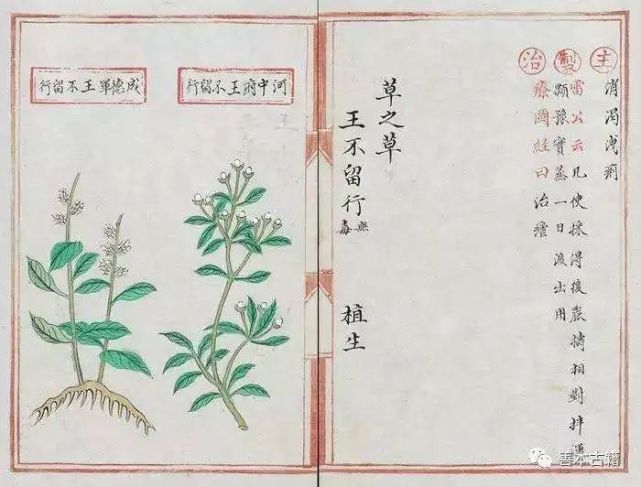 主
消渴洩痢
製
雷公云凡使採得後 擣相對拌
實蒸一日後出用
治
療圖經曰治
草之草
王不留行
無毒
植生
河中府王不留行
成德軍王不留行
善本古籍